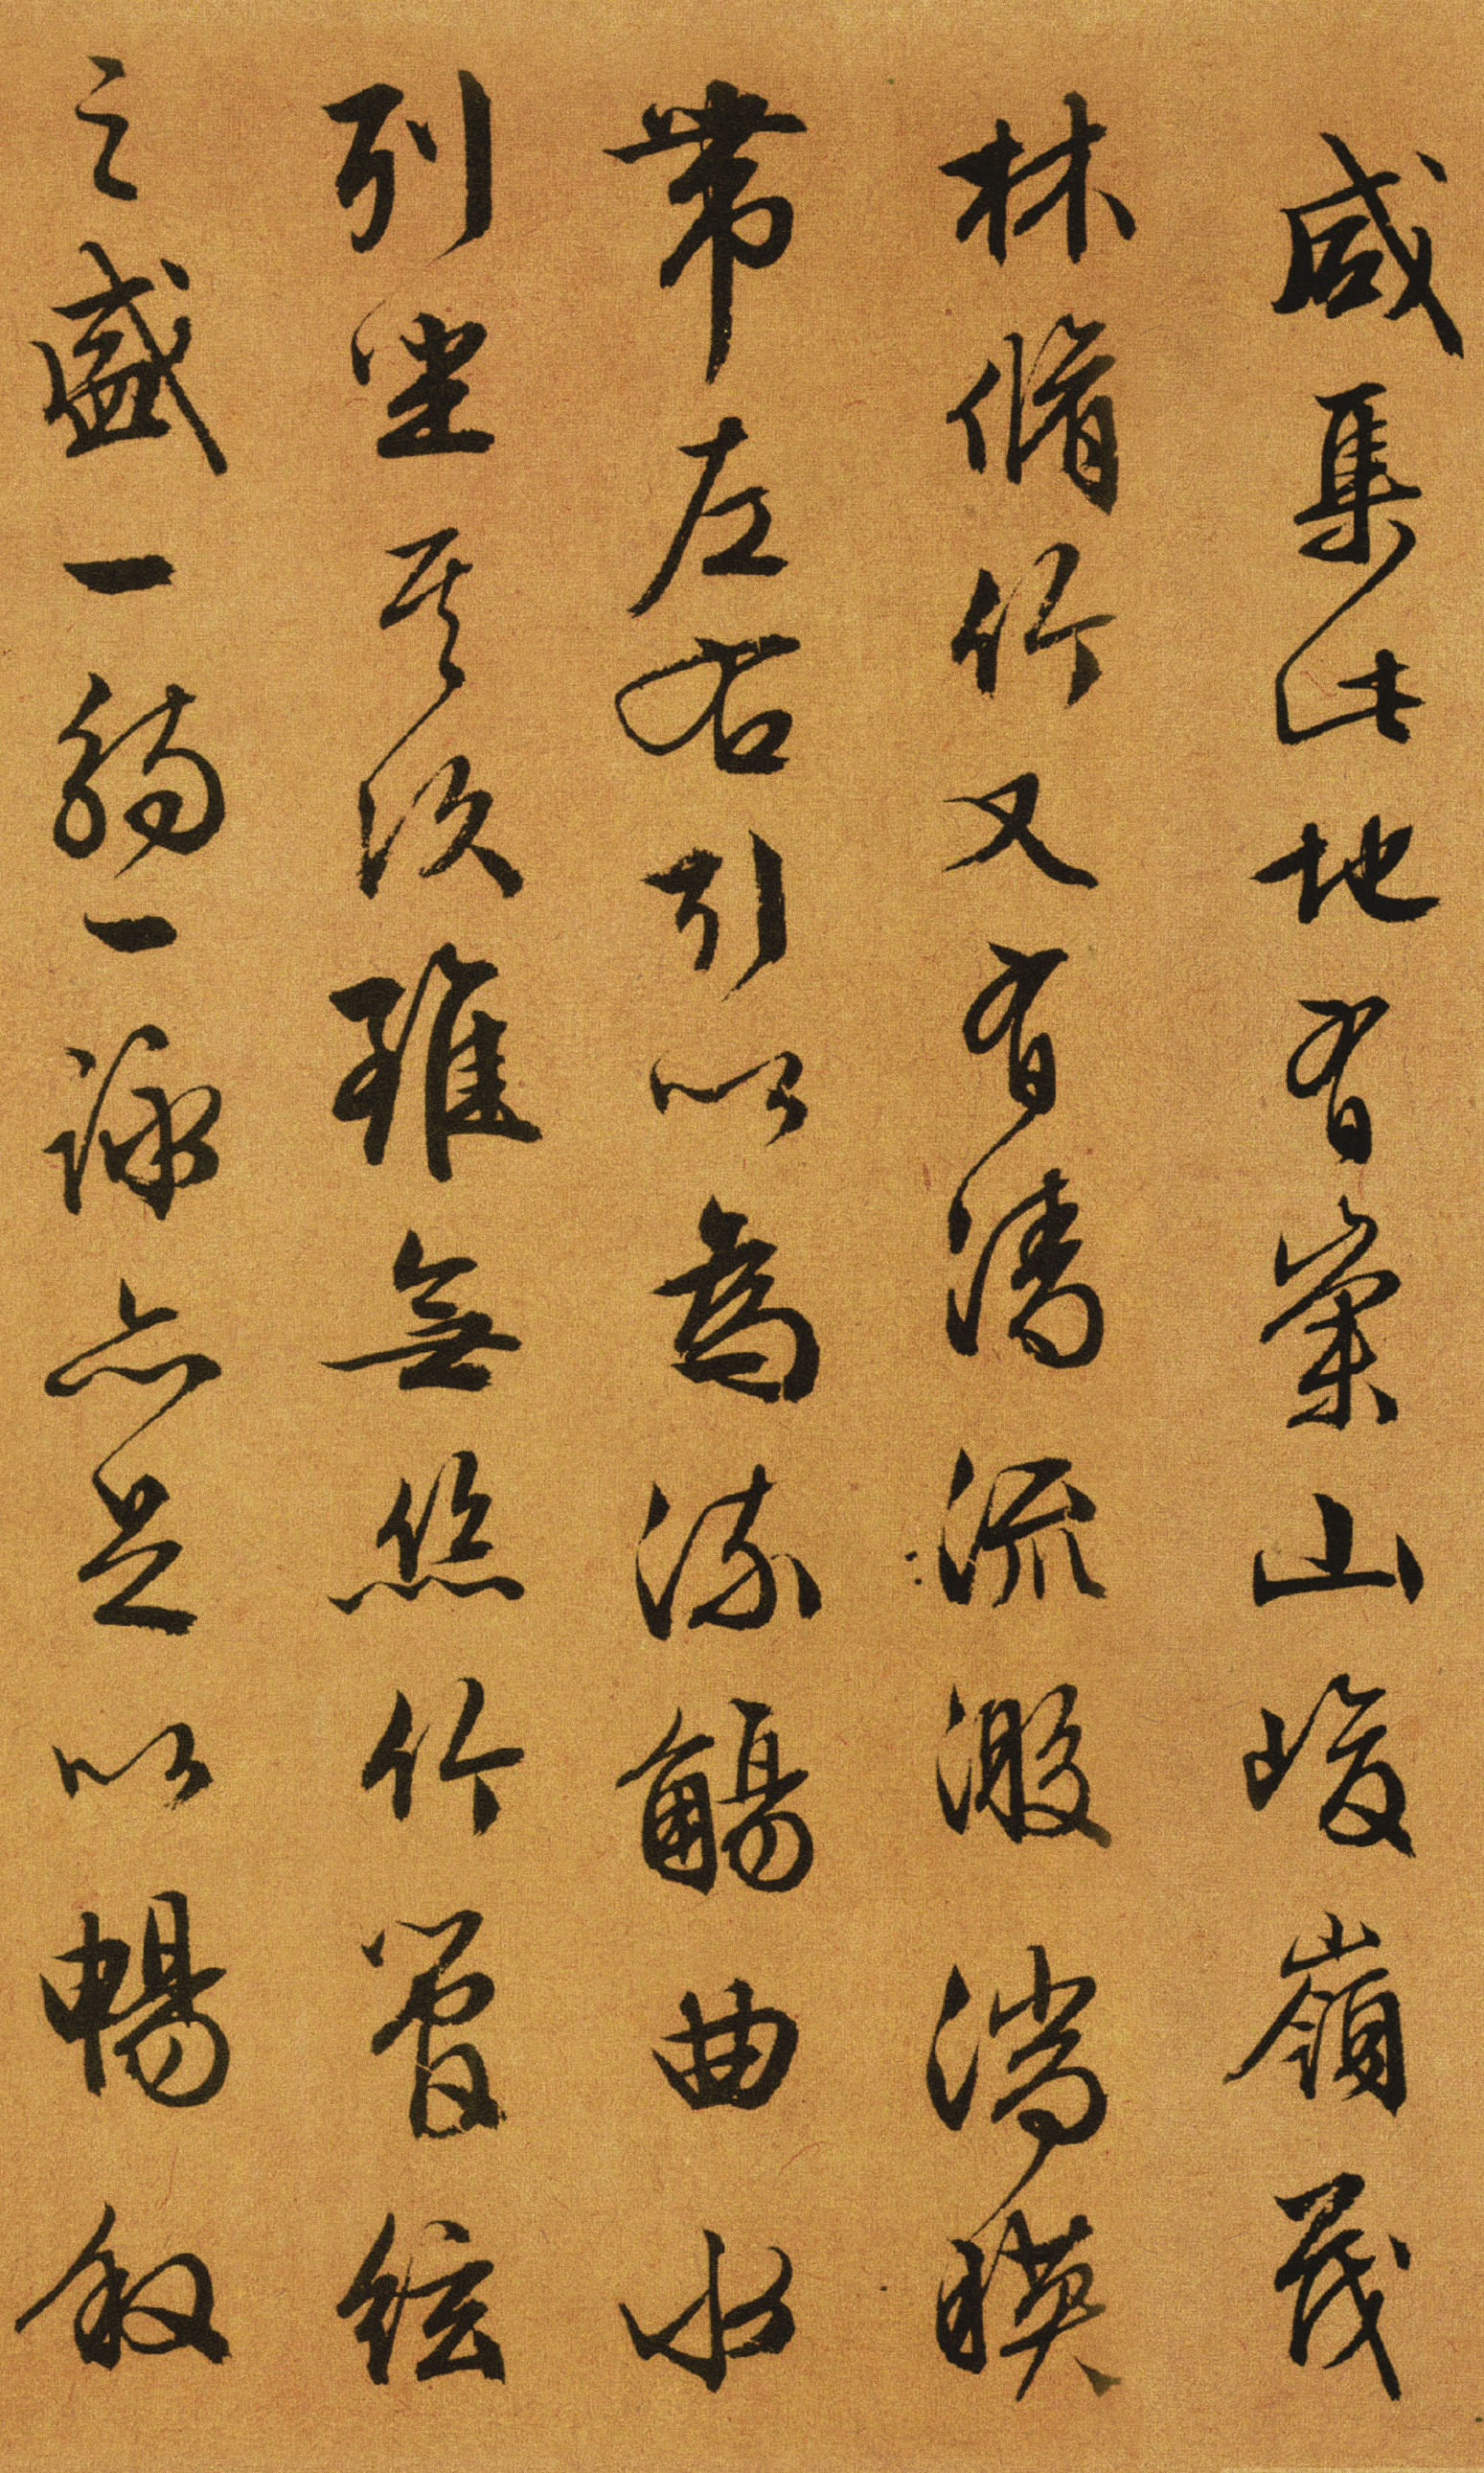 咸集此地有崇山峻嶺茂
林脩竹又有清流激湍暎
帶左右引以為流觴曲水
列坐其次雖無絲竹管絃
之盛一觴一詠亦足以暢叙